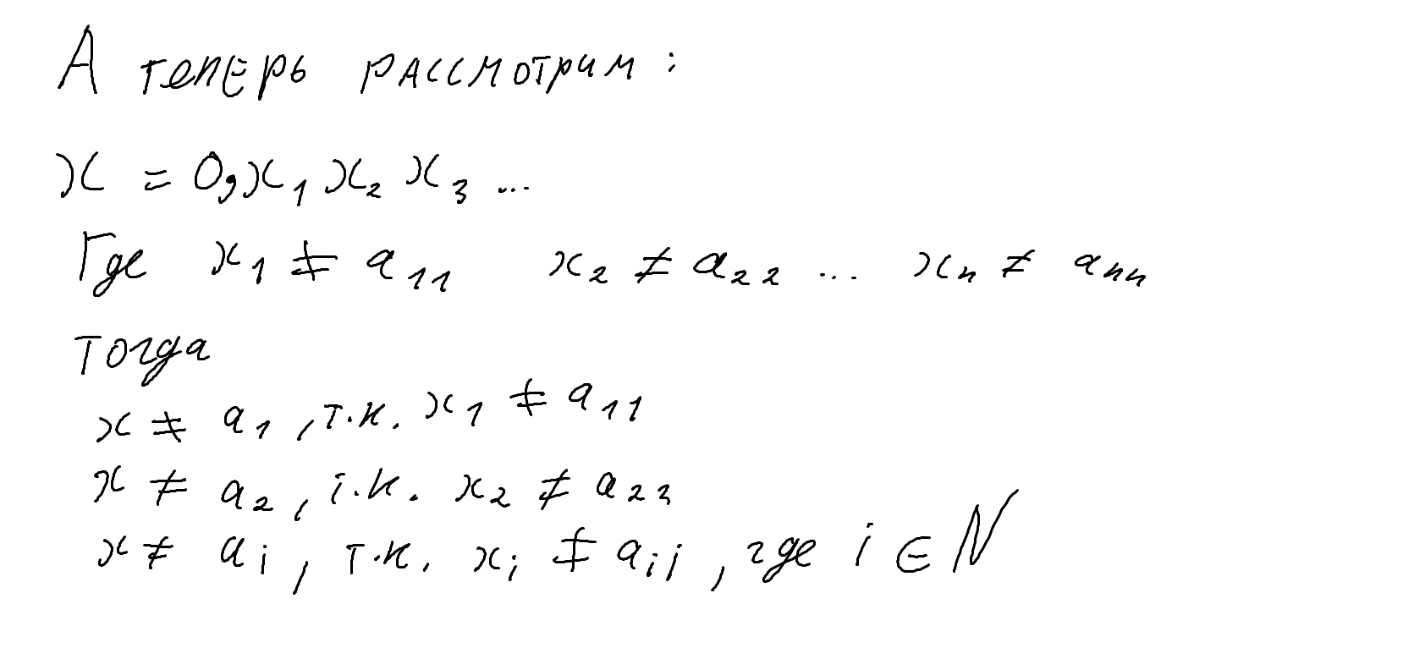 А теперь рассмотрим:
x = 0,x₁x₂x₃...
Где x₁ ≠ a₁₁ x₂ ≠ a₂₂ ... xₙ ≠ aₙₙ
Тогда
x ≠ a₁, т.к. x₁ ≠ a₁₁
x ≠ a₂, т.к. x₂ ≠ a₂₂
x ≠ aᵢ, т.к. xᵢ ≠ aᵢᵢ, где i ∈ N